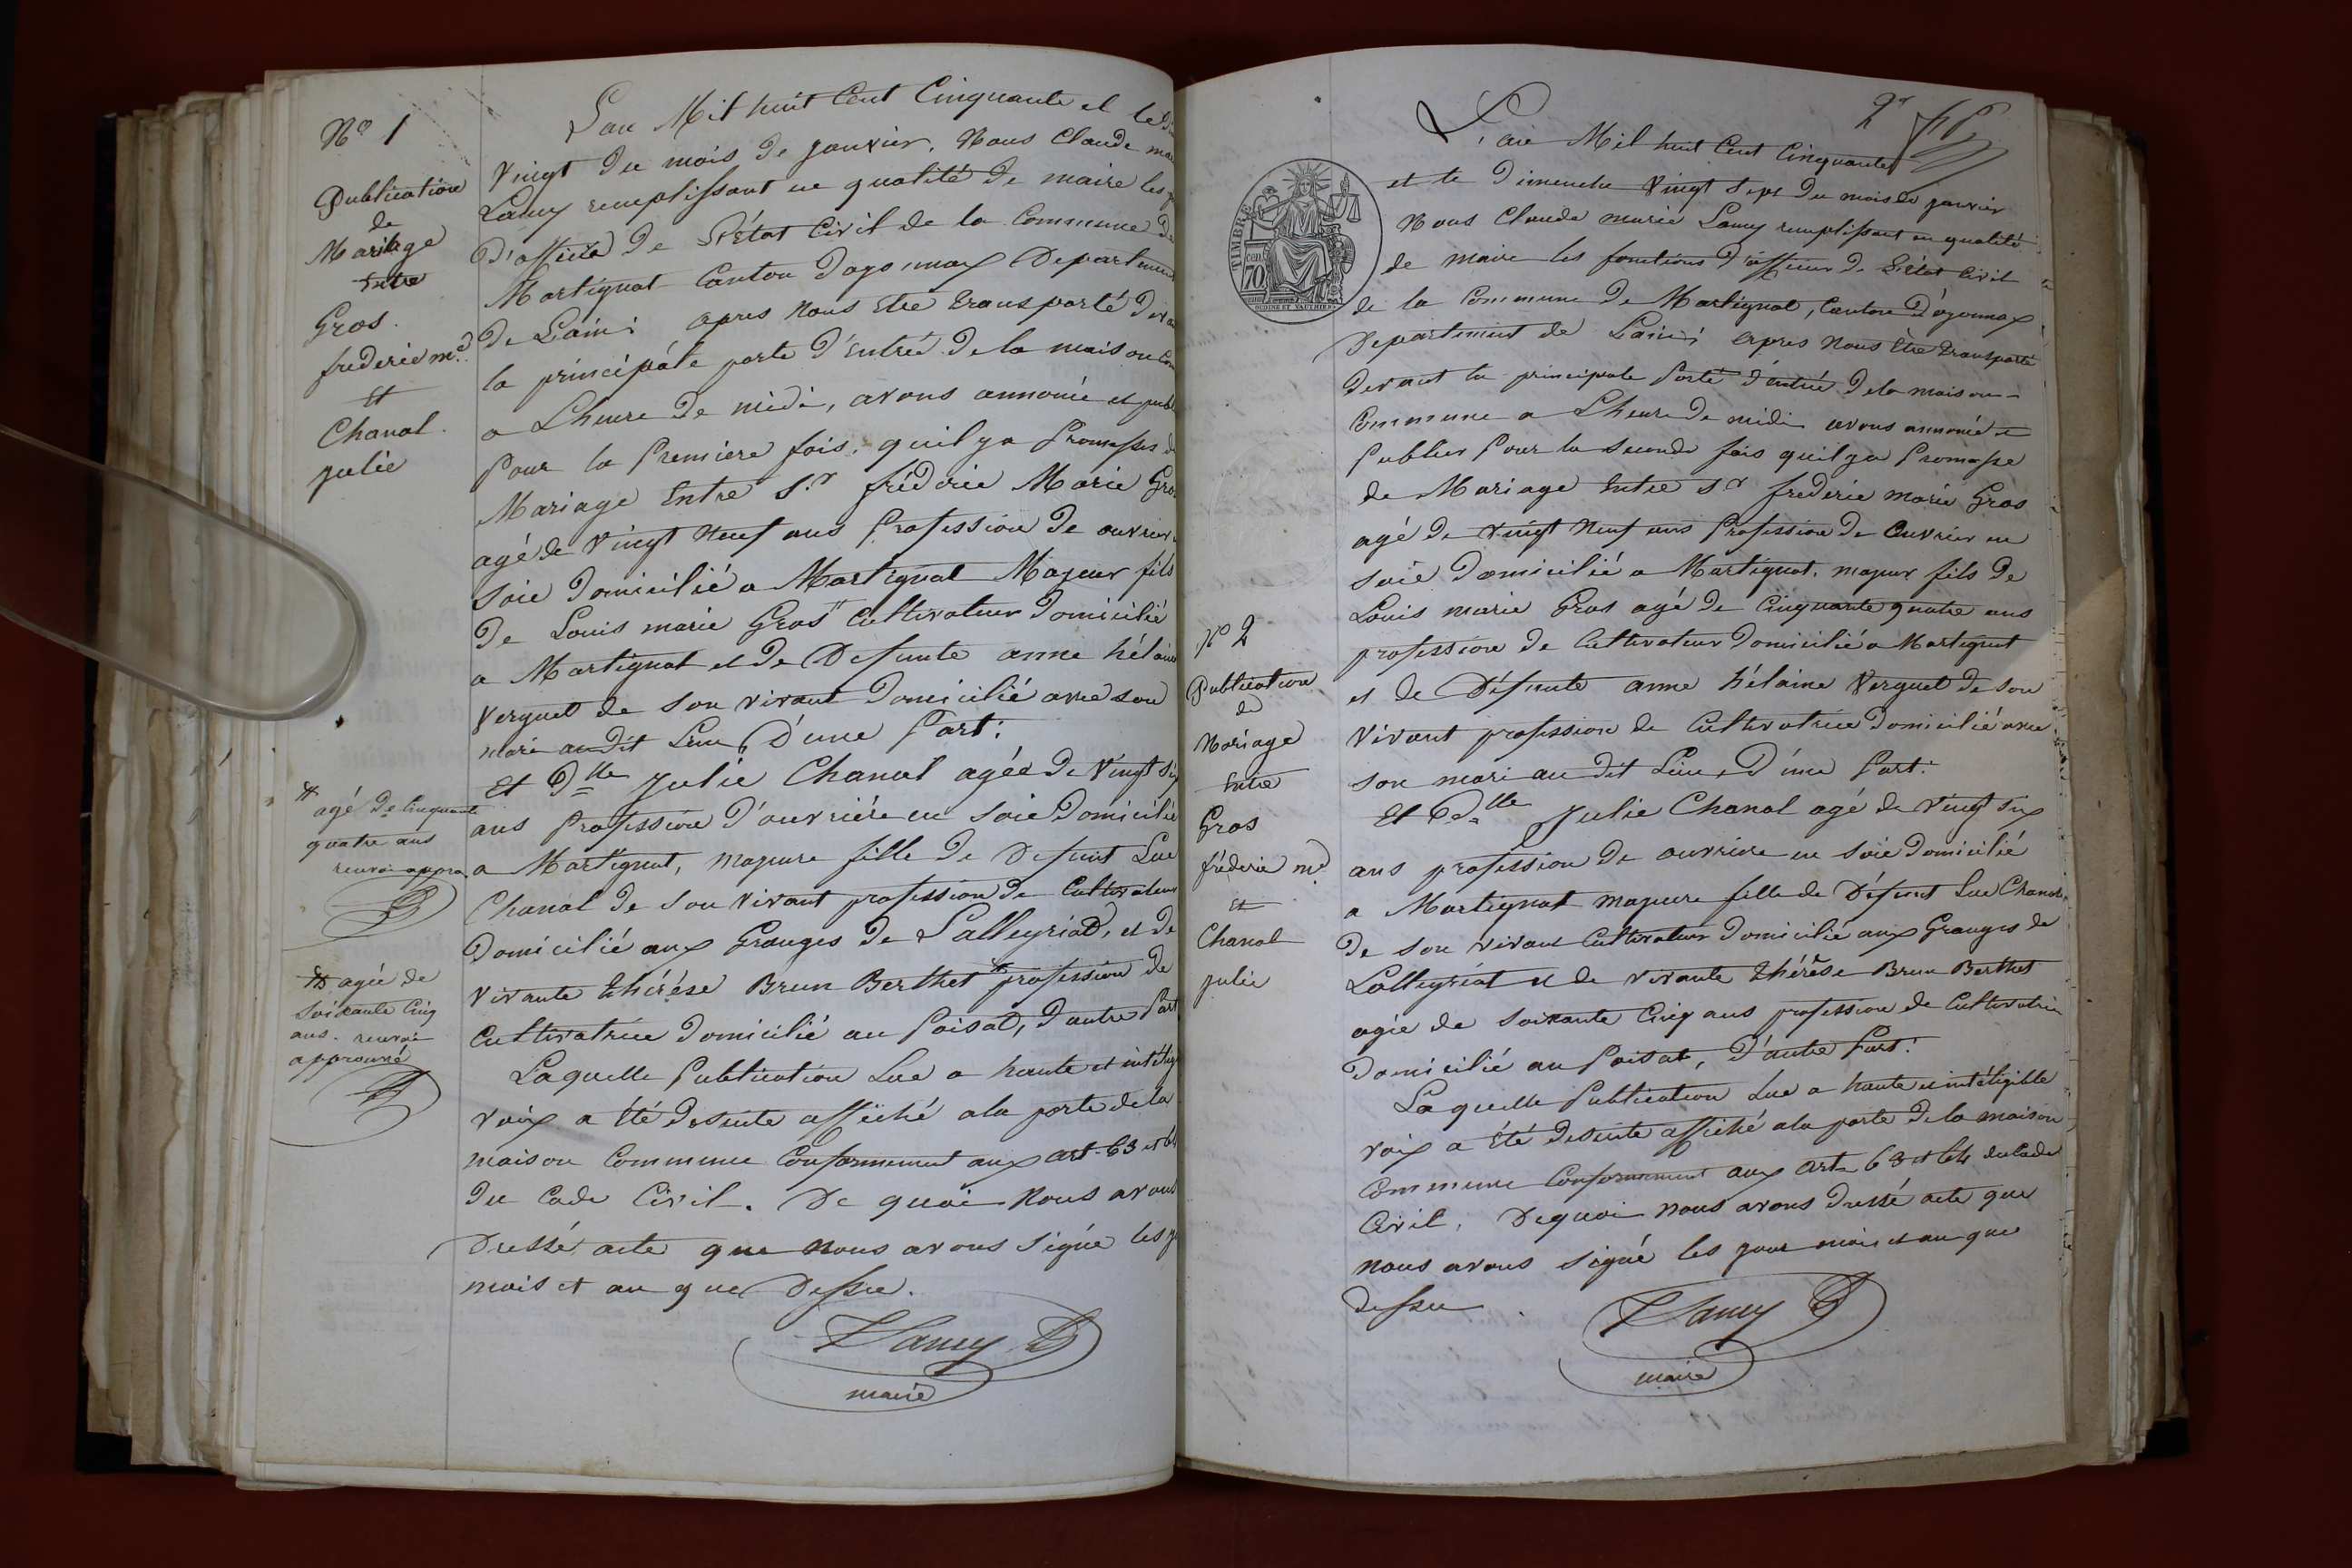 N° 1
Publication
de
Mariage
Entre
Gros.
frederic m.e
Et
Chanal.
julie
L'an Mil huit Cent Cinquante et le
Vingt du mois de janvier. Nous Claude
Lamy remplissant en qualité de maire les
d'officié de L'état Civil de la Commune de
Martignat Canton d'ogonnax Departement
de L'ain: apres nous Etre transporté
la principale porte d'Entrée de la maison
a Lheure de midi, avons annoncé et
Pour la Premiere fois. quil ya Promesses
Mariage Entre S.r fréderic Marie Gros
agé de Vingt Neuf ans Profession de ouvrier
Soie domicilié a Martignat Majeur fils
de Louis marie Gros # Cultivateur domicilié
a Martignat et de Defunte anne hélaine
Verguet de Son vivant domicilié avec son
mari au dit Lieu, D'une Part:
Et D.lle Julie Chanal agée de Vingt Six
ans Profession d'ouvrière en Soie Domicilié
a Martignat, majeure fille de Defunt Luc
Chanal de Son Vivant profession de Cultivateur
Domicilié aux Granges de Lalleyriat, et de
Vivante thérése Brun Berthet # profession de
Cultivatrice domicilié au Poisat, d'autre Part
Laquelle Publication Lue a haute et
voix a été desuite affiché ala porte de la
maison Commune Conformement aux art. 63 et 64
du Code Civil. De quoi Nous avons
Dressé acte que nous avons Signé les
mois et an que dessu.
Lamy
maire
# agé de Cinquante
quatre ans
renvoi
# agée de
Soixante Cinq
ans. renvoi
approuvé
2
L'an Mil huit Cent Cinquante
et le Dimenche Vingt Sept du mois de janvier
Nous Claude marie Lamy remplissant en qualité
de maire les fonctions d'officier de L'état Civil
de la Commune de Martignat, Canton d'ogonnax
Departement de L'ain; apres nous Etre transporté
devant la principale Porte d'entrée de la maison
Commune a Lheure de midi avons annoncé et
Publier Pour la Seconde fois quil ya Promesse
de Mariage Entre S.r frederic marie Gros
agé de Vingt Neuf ans Profession de Ouvrier en
Soie Domicilié a Martignat. majeur fils de
Louis marie Gros agé de Cinquante quatre ans
profession de Cultivateur domicilié a Martignat
et de Défunte anne hélaine Verguet de Son
Vivant profession de Cultivatrice Domicilié avec
son mari au dit Lieu, D'une Part:
Et D.lle Julie Chanal agé de Vingt Six
ans profession de ouvriere en Soie Domicilié
a Martignat majeure fille de Défunt Luc Chanal,
De Son vivant Cultivateur Domicilié aux Granges de
Lalleyriat et de vivante thérèse Brun Berthet
agée de Soixante Cinq ans profession de Cultivatrice
Domicilié au Poisat, D'autre Part:
Laquelle Publication Lue a haute et intéligible
voix a été desuite affiché ala porte de la maison
Commune Conformement aux art. 63 et 64 du Code
Civil. De quoi nous avons dressé acte que
nous avons Signé les jour mois et an que
dessu.
Lamy
maire
N° 2
Publication
de
Mariage
Entre
Gros
fréderic m.e
Et
Chanal
julie
TIMBRE
70